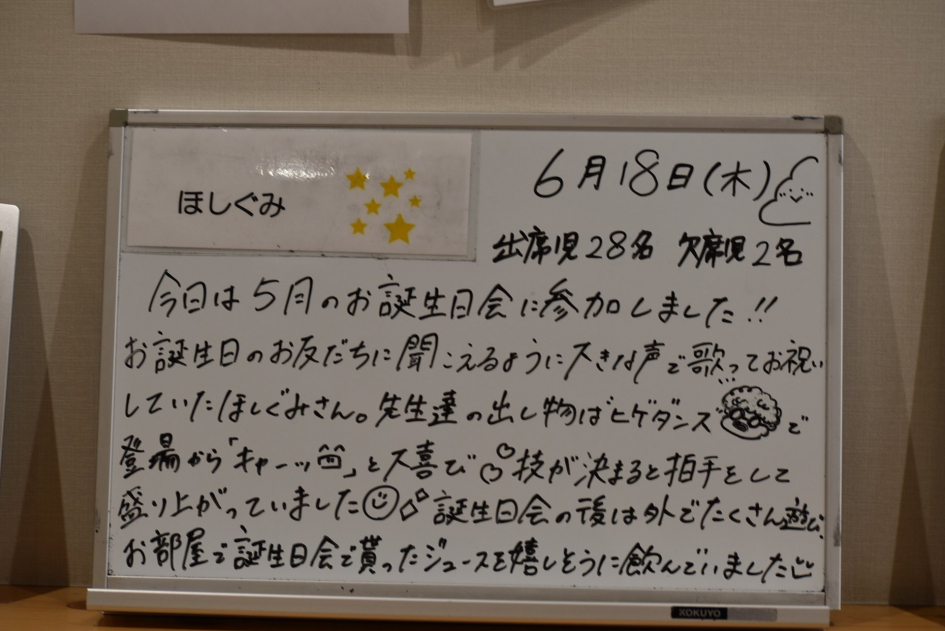 ほしぐみ
6月18日(木)
出席児28名 欠席児2名
今日は5月のお誕生日会に参加しました!!
お誕生日のお友だちに聞こえるように大きな声で歌ってお祝い
していたほしぐみさん。先生達の出し物はヒゲダンスで
登場から「キャーッ」と大喜び 技が決まると拍手をして
盛り上がっていました 誕生日会の後は外でたくさん遊び、
お部屋で誕生日会で貰ったジュースを嬉しそうに飲んでいました
KOKUYO